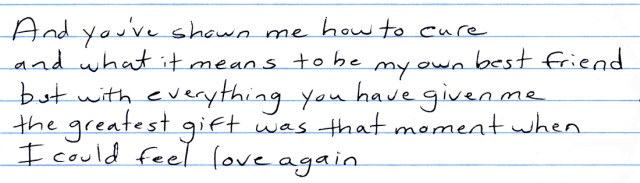 And you've shown me how to cure
and what it means to be my own best friend
but with everything you have given me
the greatest gift was that moment when
I could feel love again